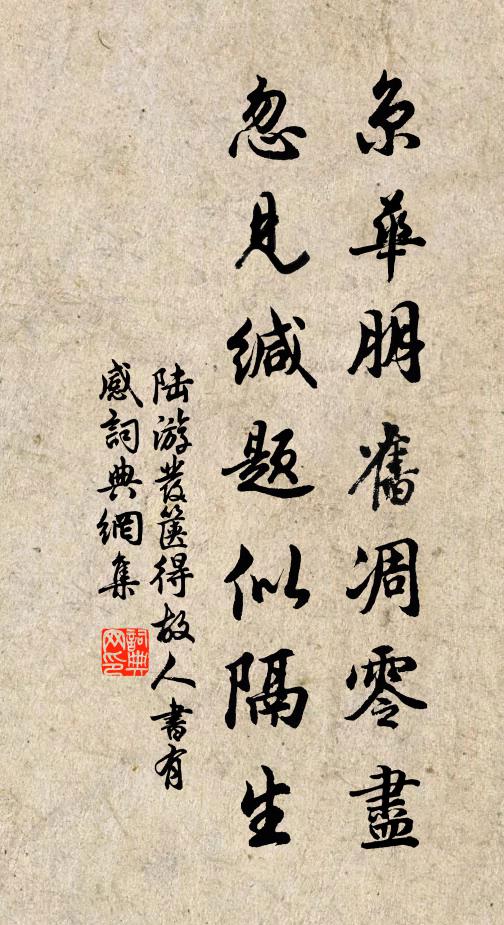 京華朋舊凋零盡
忽見緘題似隔生
陆游發篋得故人書有
感詞典網集
詞典
网印